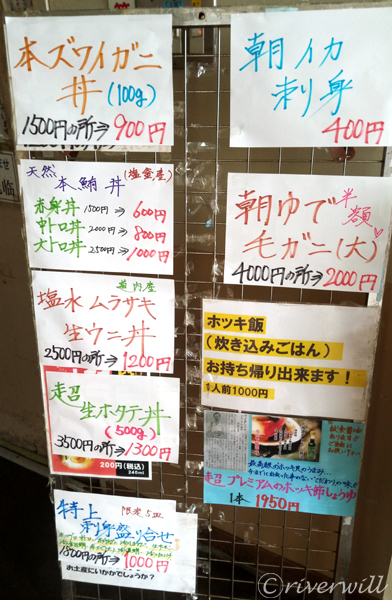 本ズワイガニ
丼(100g)
1500円の所⇒900円
天然 (塩釜産)
本鮪丼
赤身丼 1500円⇒600円
中トロ丼 2000円⇒800円
大トロ丼 2500円⇒1000円
道内産
塩水ムラサキ
生ウニ丼
2500円の所⇒1200円
超
生ホタテ丼
(500g)
3500円の所⇒1300円
200円(税込)
240ml
特上 限定5皿
刺身盛り合せ
1800円の所⇒1000円
お土産にいかがでしょうか?
朝イカ
刺り身
400円
半額
朝ゆで
毛ガニ(大)
4000円の所⇒2000円
ホッキ飯
(炊き込みごはん)
お持ち帰り出来ます!
1人前1000円
超プレミアムのホッキ節しょうゆ
1本 1950円
©riverwill